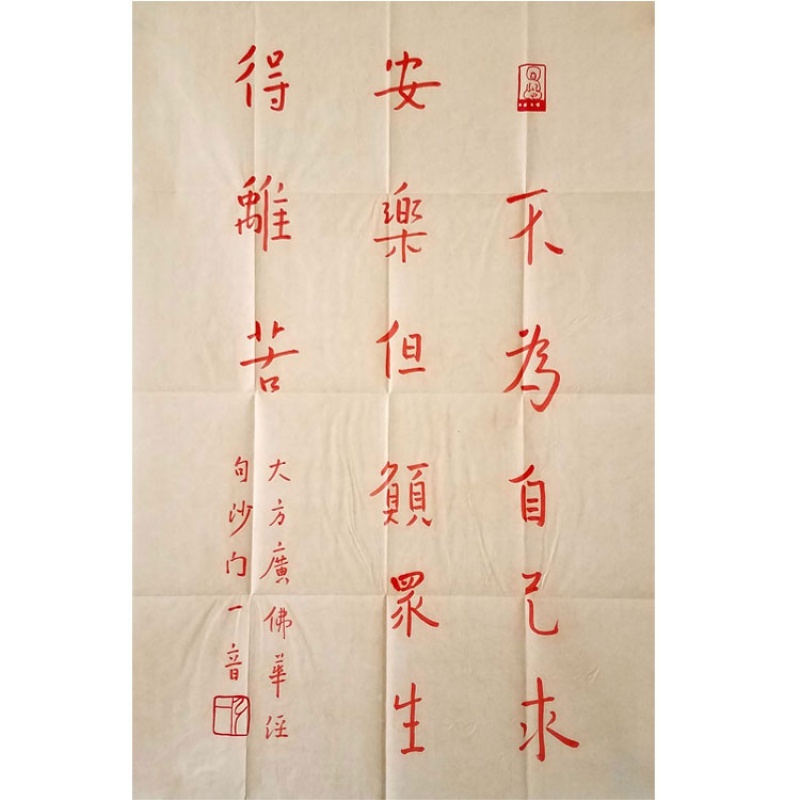 不為自己求
安樂但願眾生
得離苦
大方廣佛華經
句沙门一音